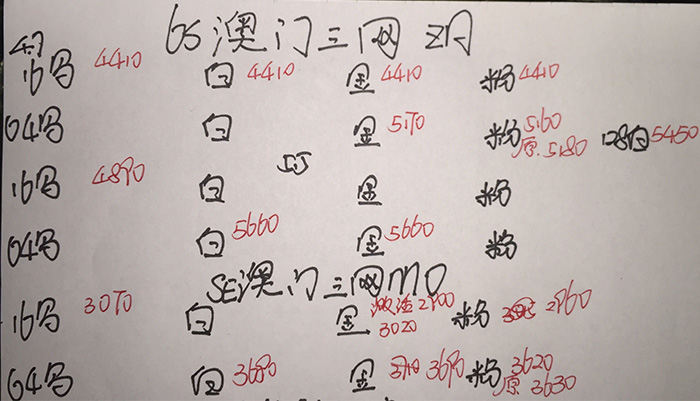 6S澳门三网ZA
16马 4410 白 4410 金 4410 粉 4410
64马 白 金 5170 粉 5160 原.5180 128白 5450
SS
16马 4890 白 金 粉
64马 白 5660 金 5660 粉
SE澳门三网MO
16马 3070 白 金 激活2900 3020 粉 2960
64马 白 3680 金 3690 粉 3620 原 3630